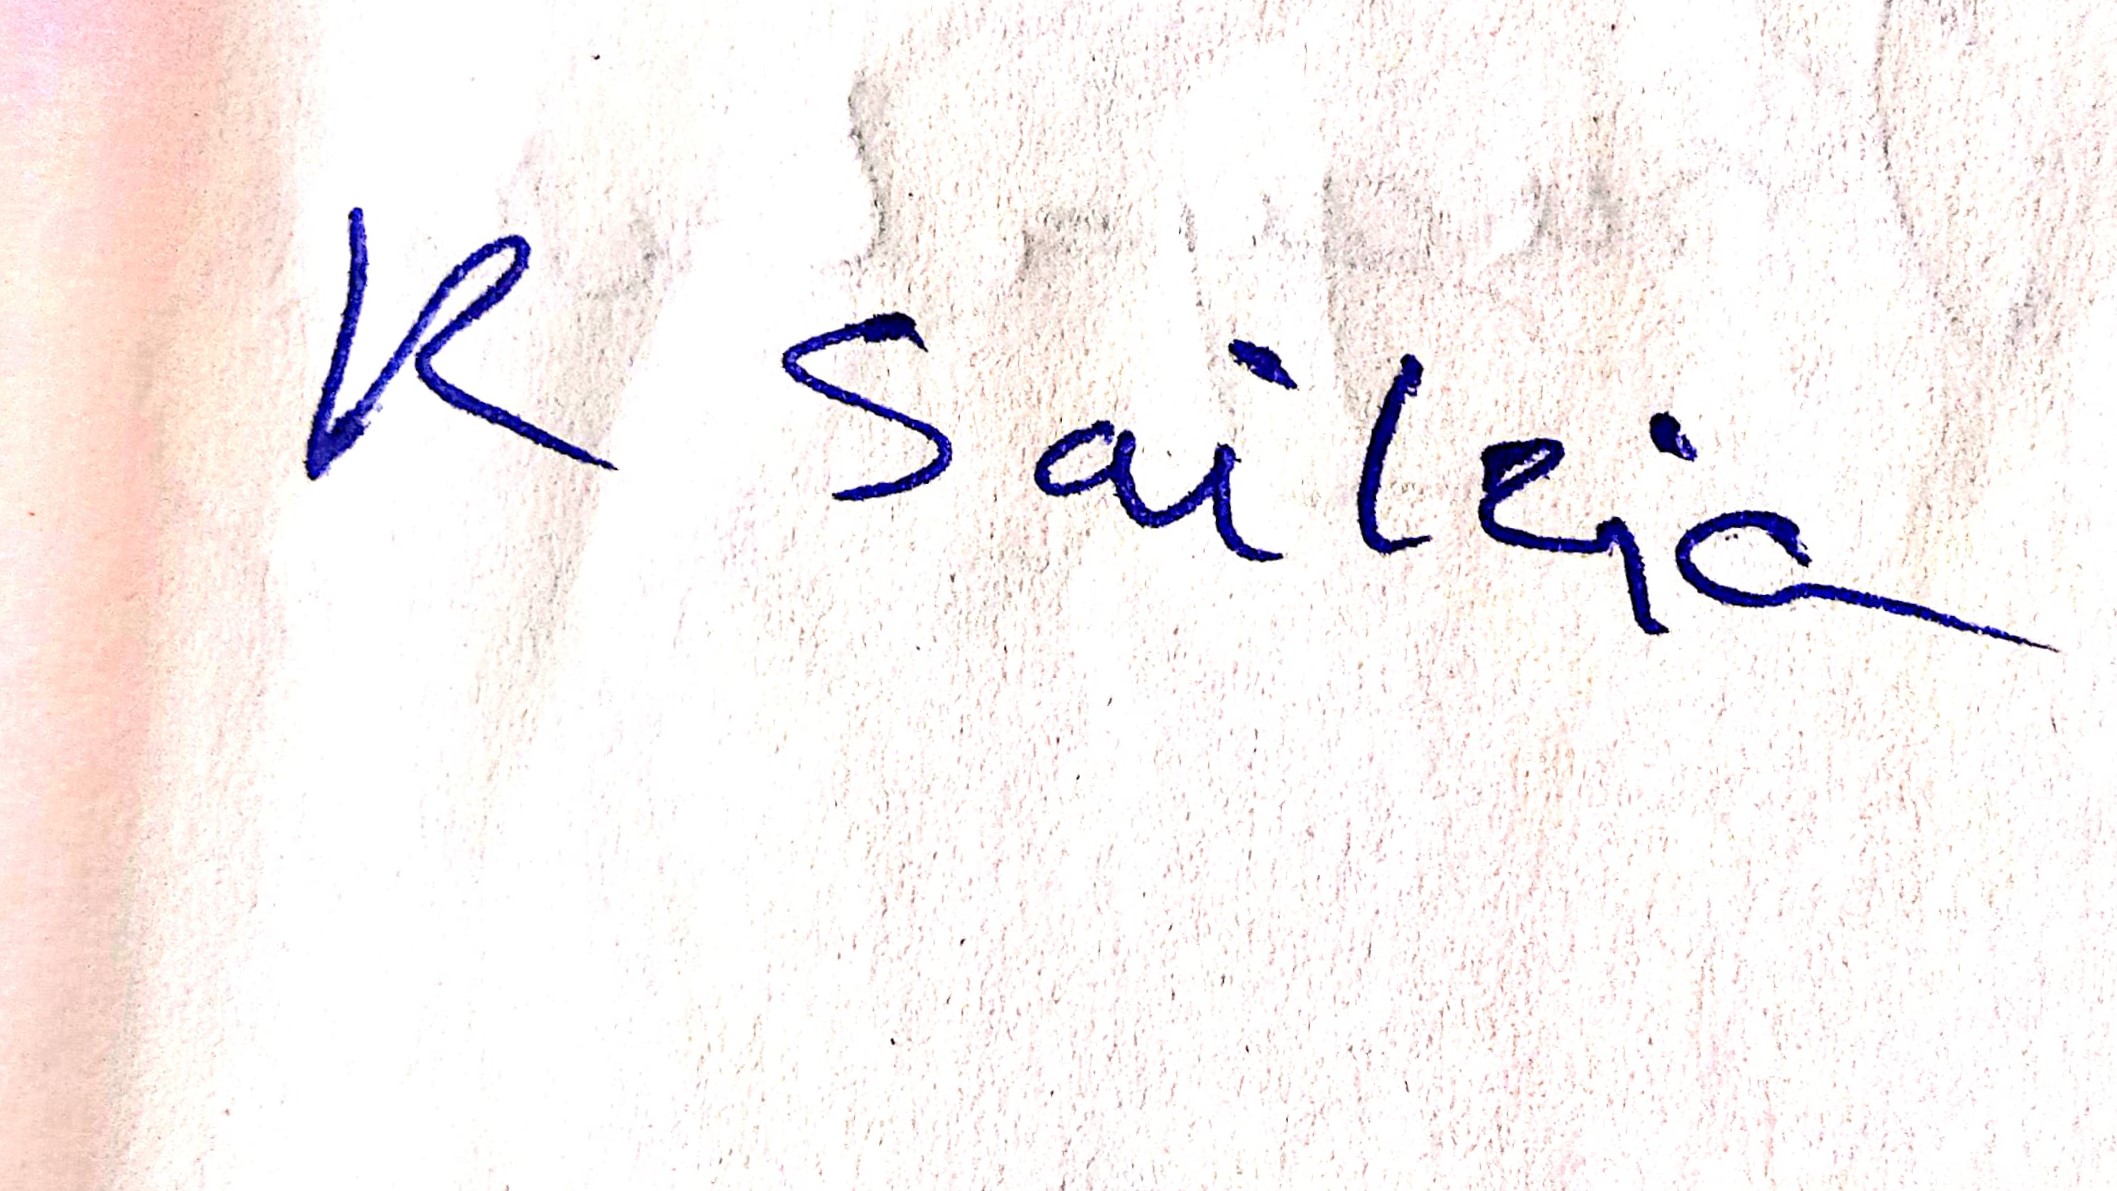 K Saileja